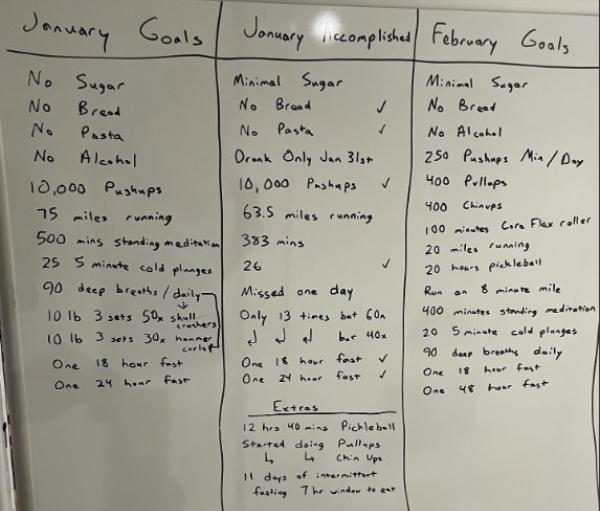 January Goals
No Sugar
No Bread
No Pasta
No Alcohol
10,000 Pushups
75 miles running
500 mins standing meditation
25 5 minute cold plunges
90 deep breaths / daily
10 lb 3 sets 50x skull crushers
10 lb 3 sets 30x hammer curls
One 18 hour fast
One 24 hour fast
January Accomplished
Minimal Sugar
No Bread ✓
No Pasta ✓
Drank Only Jan 31st
10,000 Pushups ✓
63.5 miles running
383 mins
26 ✓
Missed one day
Only 13 times but 60x
↲ ↲ ↲ but 40x
One 18 hour fast ✓
One 24 hour fast ✓
Extras
12 hrs 40 mins Pickleball
Started doing Pullups
↳ ↳ Chin Ups
11 days of intermittent
fasting 7 hr window to eat
February Goals
Minimal Sugar
No Bread
No Alcohol
250 Pushups Min/Day
400 Pullups
400 Chinups
100 minutes Core Flex roller
20 miles running
20 hours pickleball
Run an 8 minute mile
400 minutes standing meditation
20 5 minute cold plunges
90 deep breaths daily
One 18 hour fast
One 48 hour fast